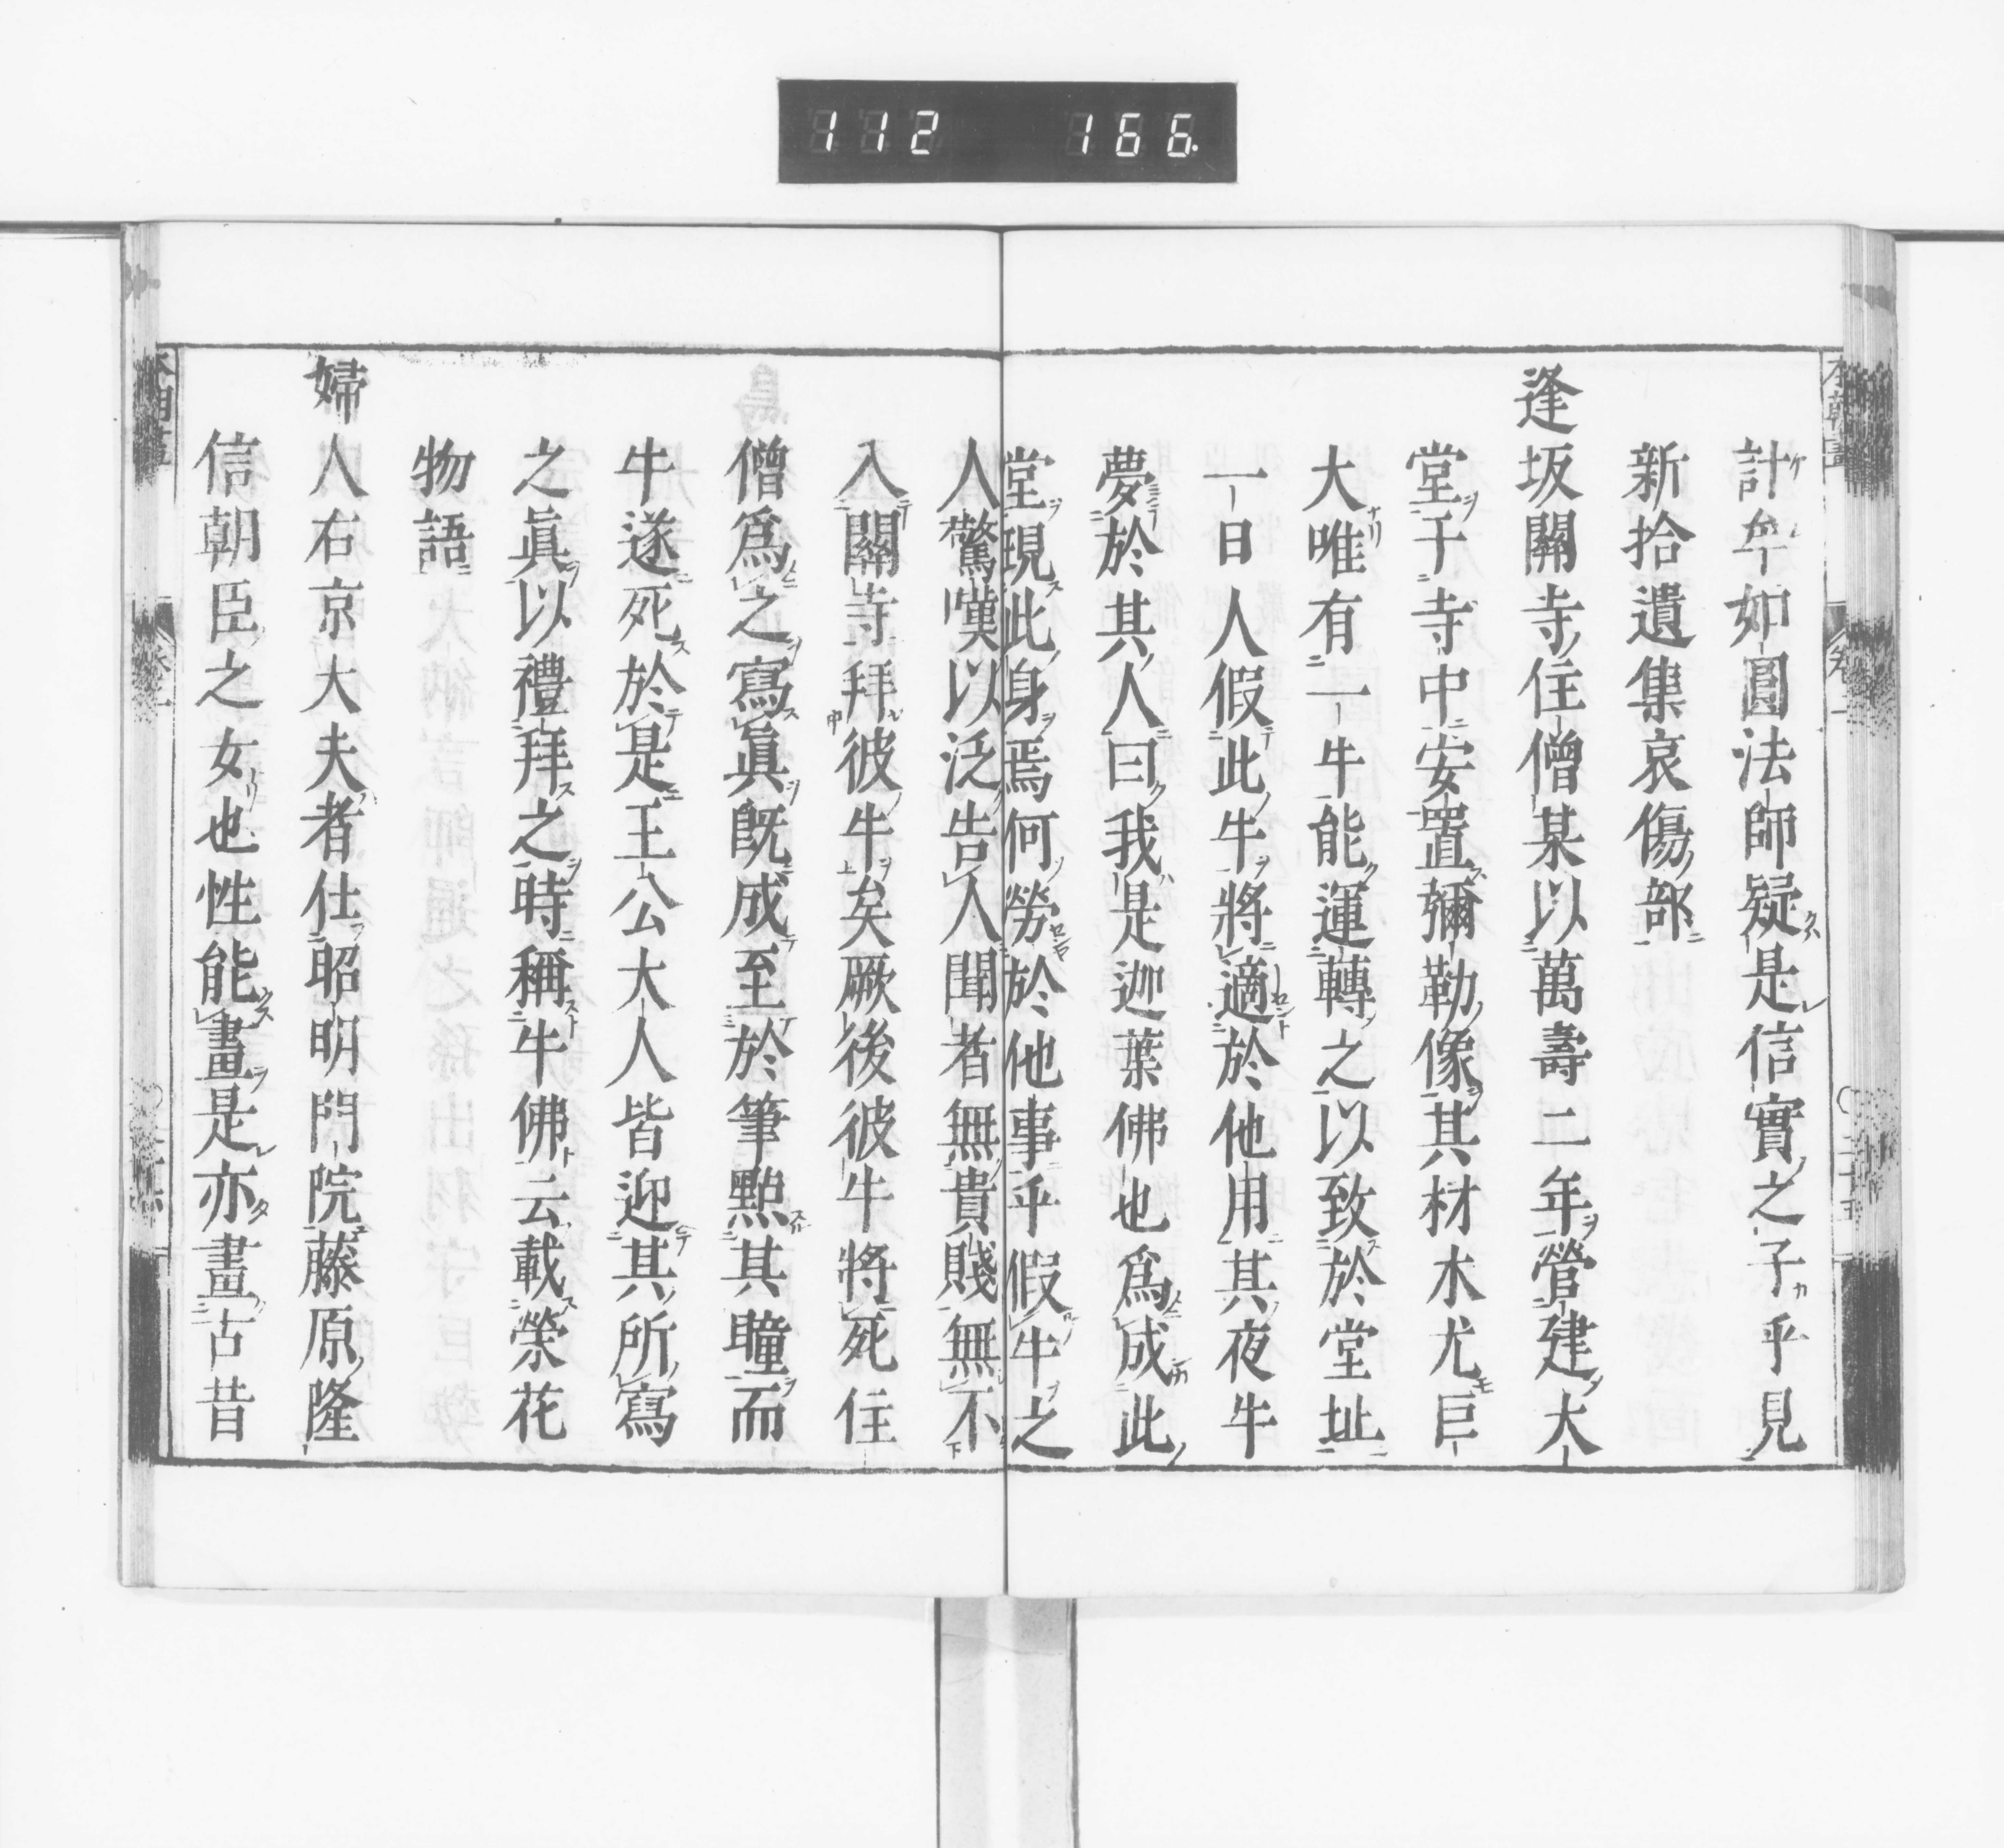 112 166.
計牟如圓法師疑是信實之子乎見
新拾遺集哀傷部
逢坂關寺住僧某以萬壽二年營建大
堂于寺中安置彌勒像其材木尤巨
大唯有一牛能運轉之以致於堂址
一日人假此牛將適於他用其夜牛
夢於其人曰我是迦葉佛也爲成此
堂現此身焉何勞於他事乎假牛之
人驚嘆以泛告人聞者無貴賤無不
入關寺拜彼牛矣厥後彼牛將死住
僧爲之寫眞既成至於筆點其瞳而
牛遂死於是王公大人皆迎其所寫
之眞以禮拜之時稱牛佛云載榮花
物語
婦人右京大夫者仕昭明門院藤原隆
信朝臣之女也性能畫是亦畫古昔